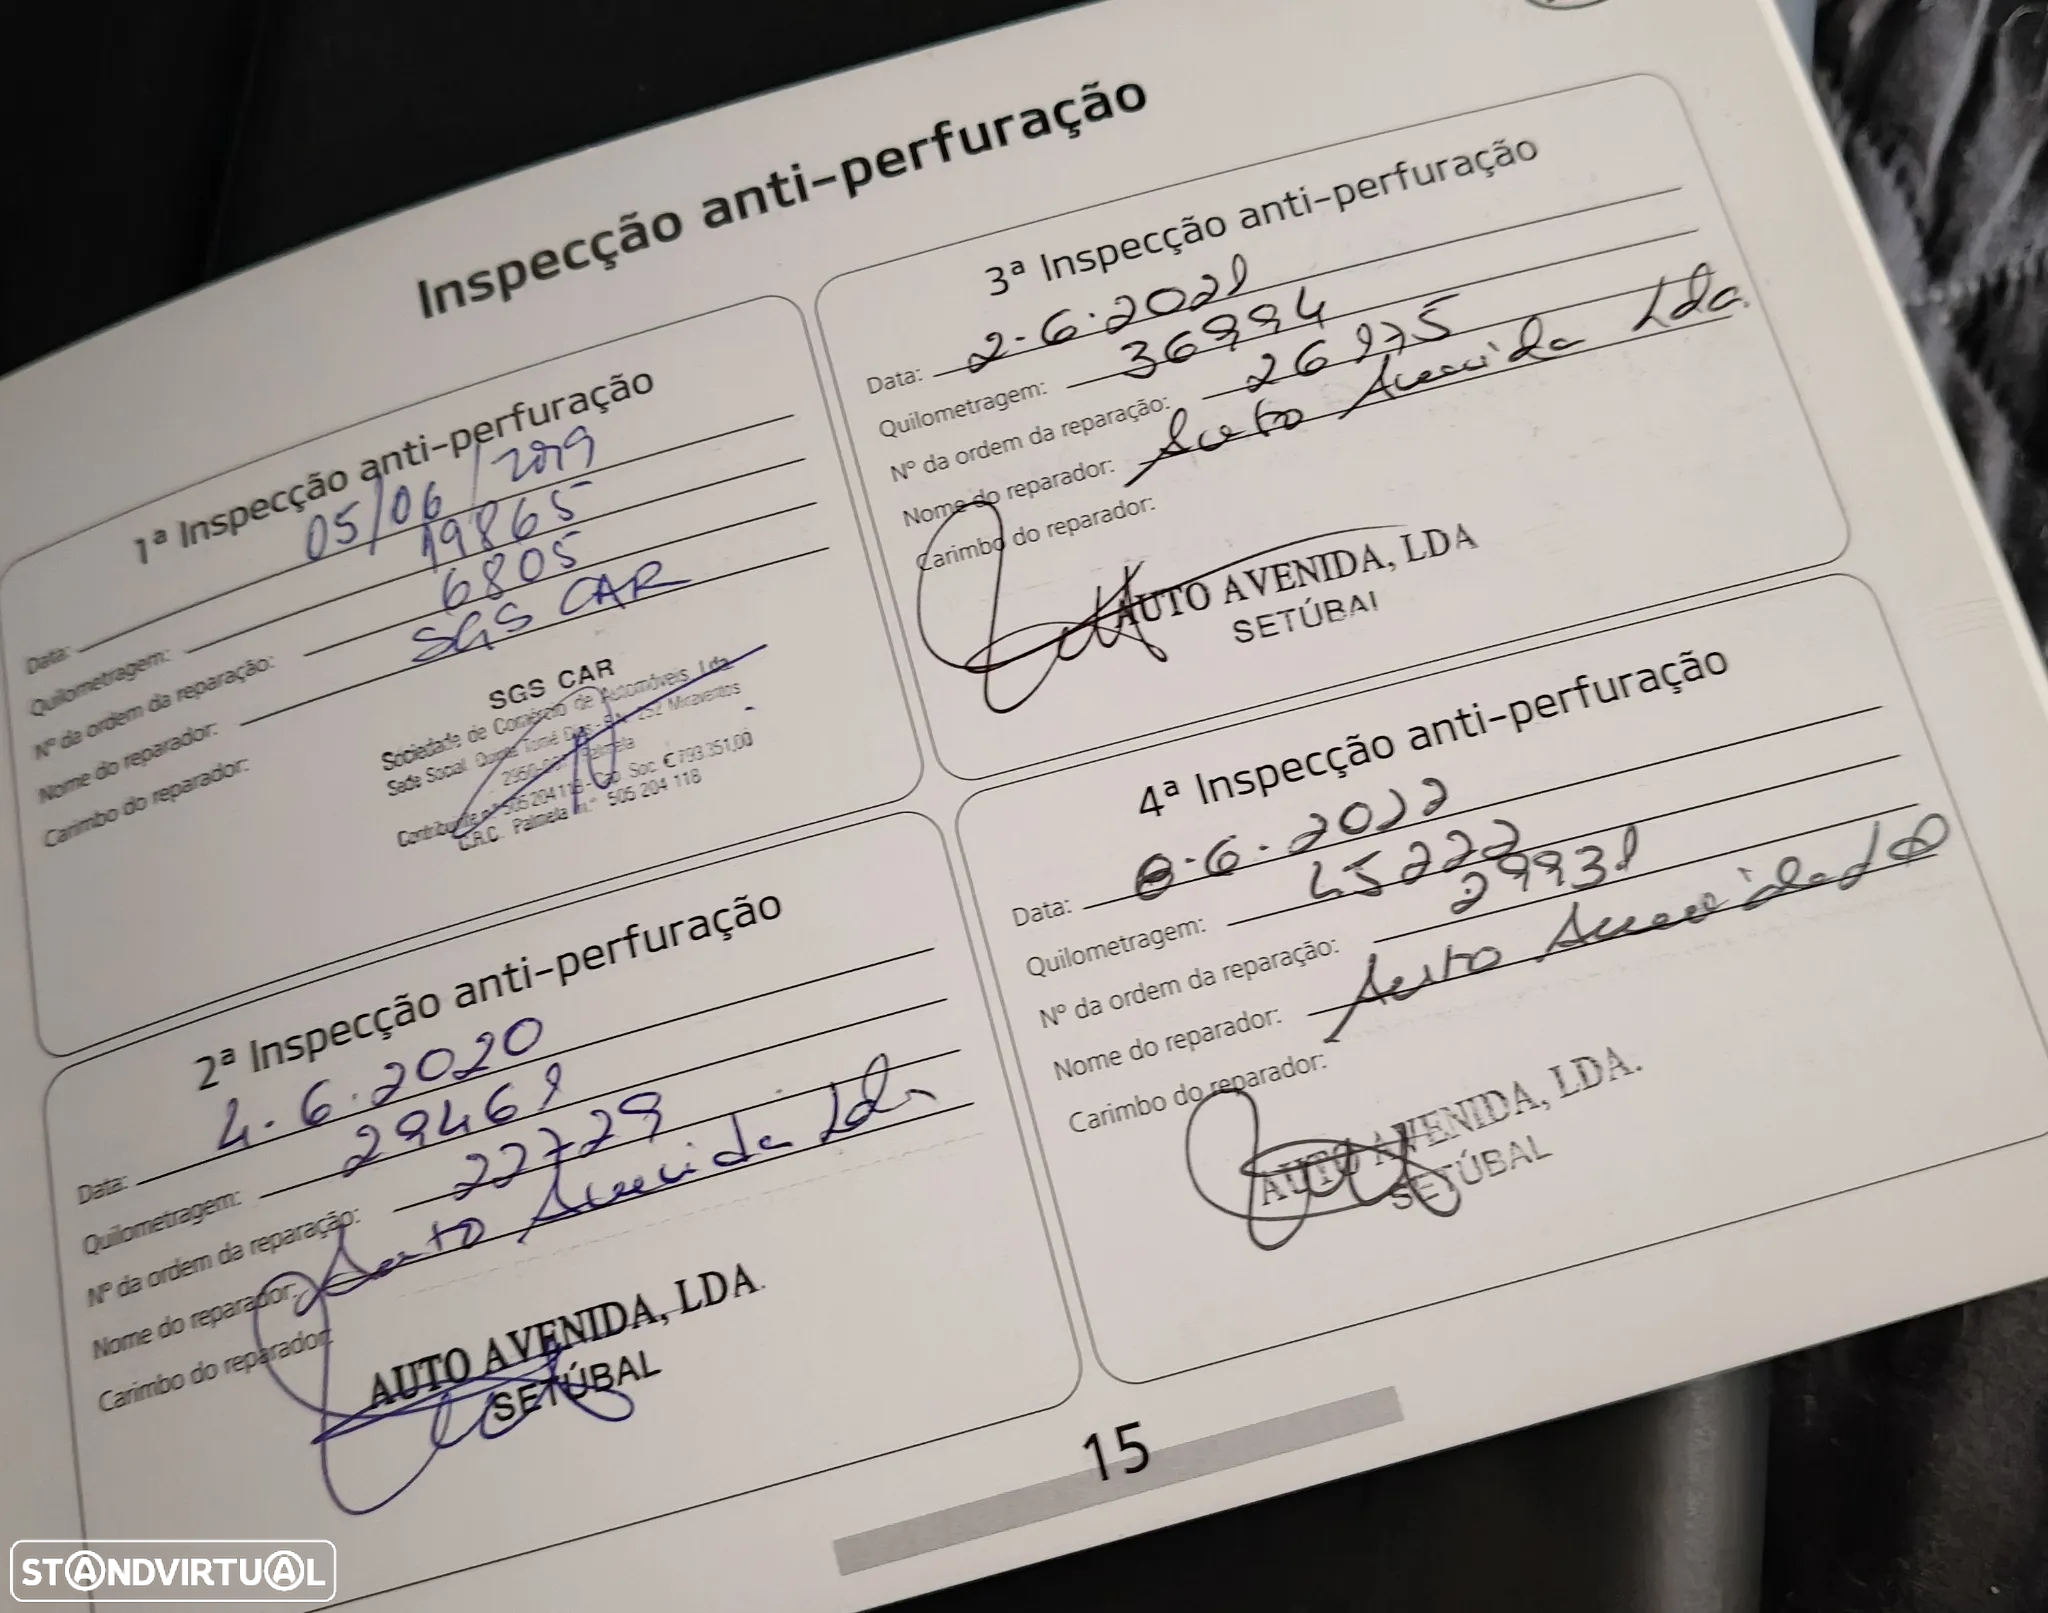 Inspecção anti-perfuração
1ª Inspecção anti-perfuração
Data: 05/06/2019
Quilometragem: 19865
Nº da ordem da reparação: 6805
Nome do reparador: SGS CAR
Carimbo do reparador:
SGS CAR
Sociedade de Comércio de Automóveis, Lda.
Sede Social: Quinta Tomé Dias - 252 Miraventos
Palmela
Contribuinte n.º 505 204 118 - Cap. Soc. € 793.351,00
C.R.C. Palmela n.º 505 204 118
2ª Inspecção anti-perfuração
Data: 4.6.2020
Quilometragem: 29461
Nº da ordem da reparação: 22729
Nome do reparador: Auto Avenida Lda
Carimbo do reparador:
AUTO AVENIDA, LDA.
SETÚBAL
3ª Inspecção anti-perfuração
Data: 2.6.2021
Quilometragem: 36994
Nº da ordem da reparação: 26175
Nome do reparador: Auto Avenida Lda.
Carimbo do reparador:
AUTO AVENIDA, LDA
SETÚBAL
4ª Inspecção anti-perfuração
Data: 6.6.2022
Quilometragem: 45222
Nº da ordem da reparação: 29931
Nome do reparador: Auto Avenida Lda
Carimbo do reparador:
AUTO AVENIDA, LDA.
SETÚBAL
15
STANDVIRTUAL